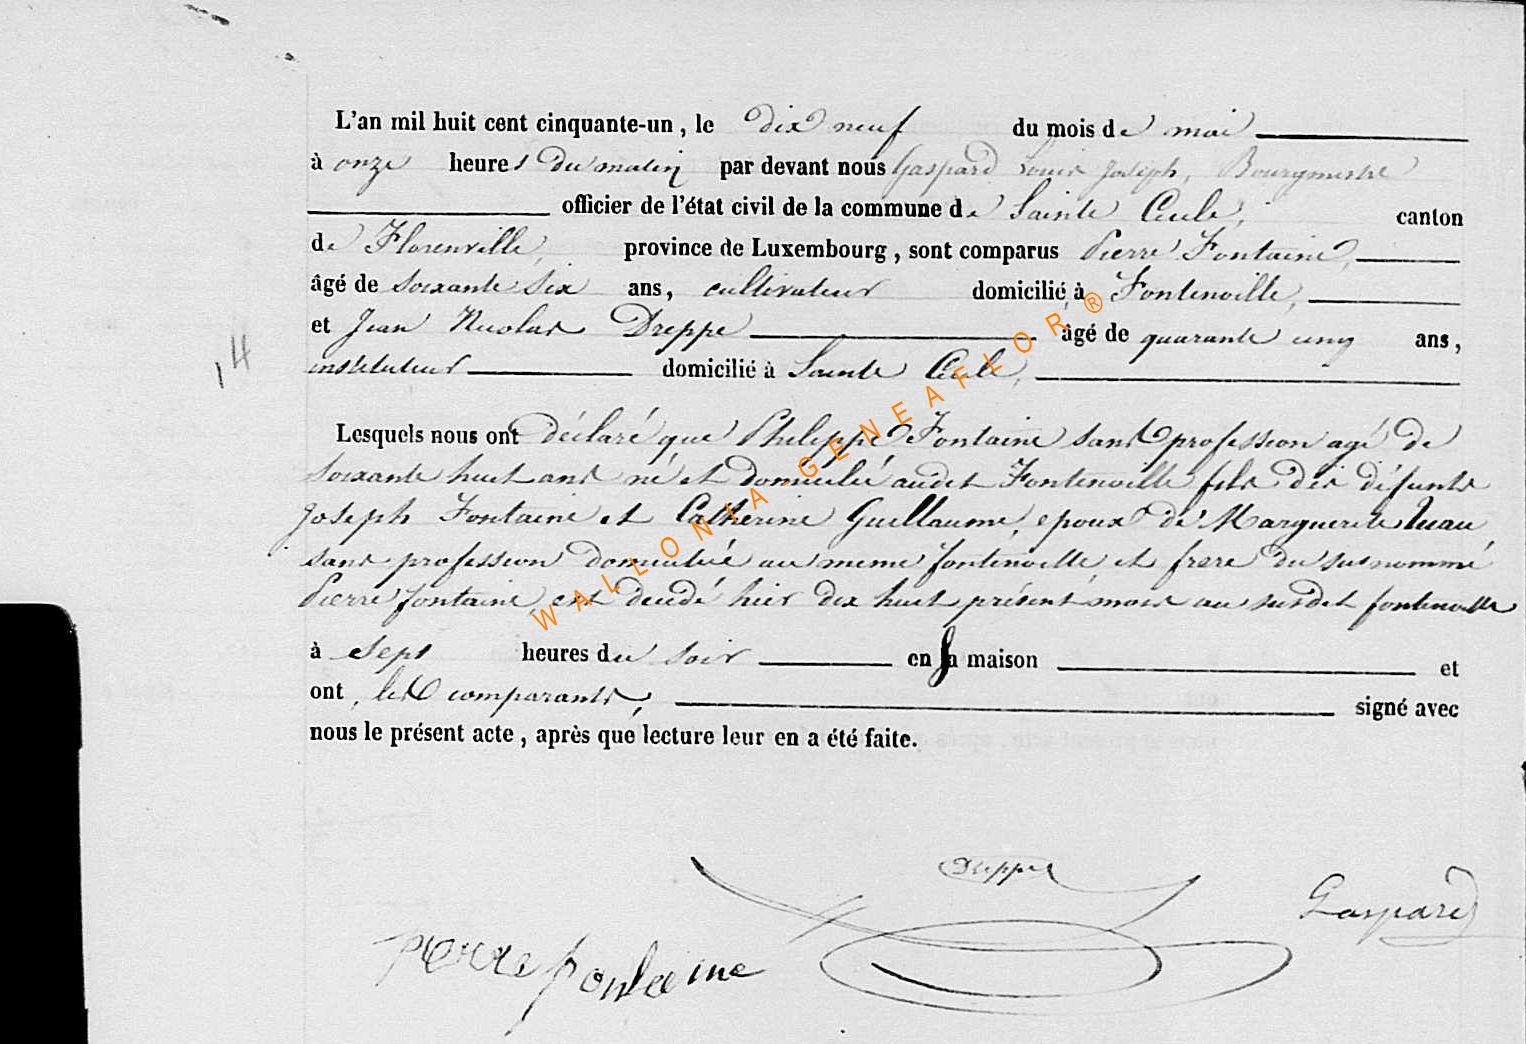 L'an mil huit cent cinquante-un, le dix neuf du mois de mai
à onze heures du matin par devant nous Gaspard Louis Joseph, Bourgmestre
officier de l'état civil de la commune de Sainte Cécile, canton
de Florenville, province de Luxembourg, sont comparus Pierre Fontaine,
âgé de soixante six ans, cultivateur domicilié à Fontenoille,
et Jean Nicolas Dreppe âgé de quarante cinq ans,
14
instituteur domicilié à Sainte Cécile,
Lesquels nous ont déclaré que Philippe Fontaine sans profession agé de
soixante huit ans né et domicilié audit Fontenoille fils des défunts
Joseph Fontaine et Catherine Guillaume, epoux de Marguerite
sans profession domiciliée au meme fontenoille, et frere du susnommé
Pierre fontaine, est decédé hier dix huit présent mois au susdit fontenoille
à sept heures du soir en sa maison et
ont, les comparants, signé avec
nous le présent acte, après que lecture leur en a été faite.
Dreppe
Gaspard
Pierre fontaine
WALLONIA-GENEAFLOR®